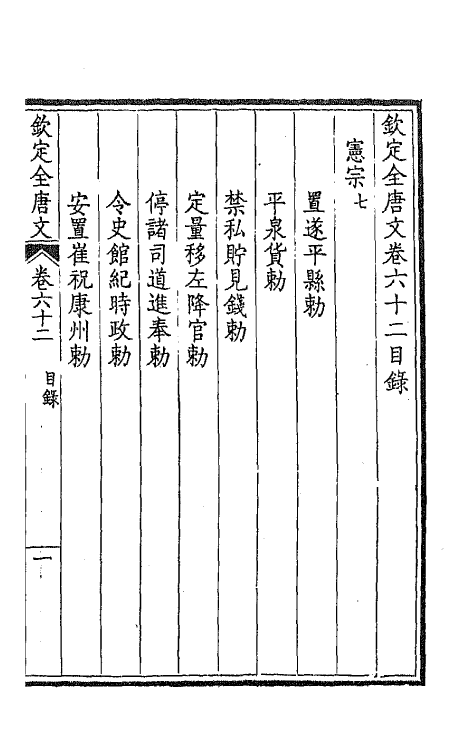 欽定全唐文卷六十二目錄
憲宗七
置遂平縣勅
平泉貨勅
禁私貯見錢勅
定量移左降官勅
停諸司道進奉勅
令史館紀時政勅
安置崔祝康州勅
欽定全唐文 卷六十二 目錄 一